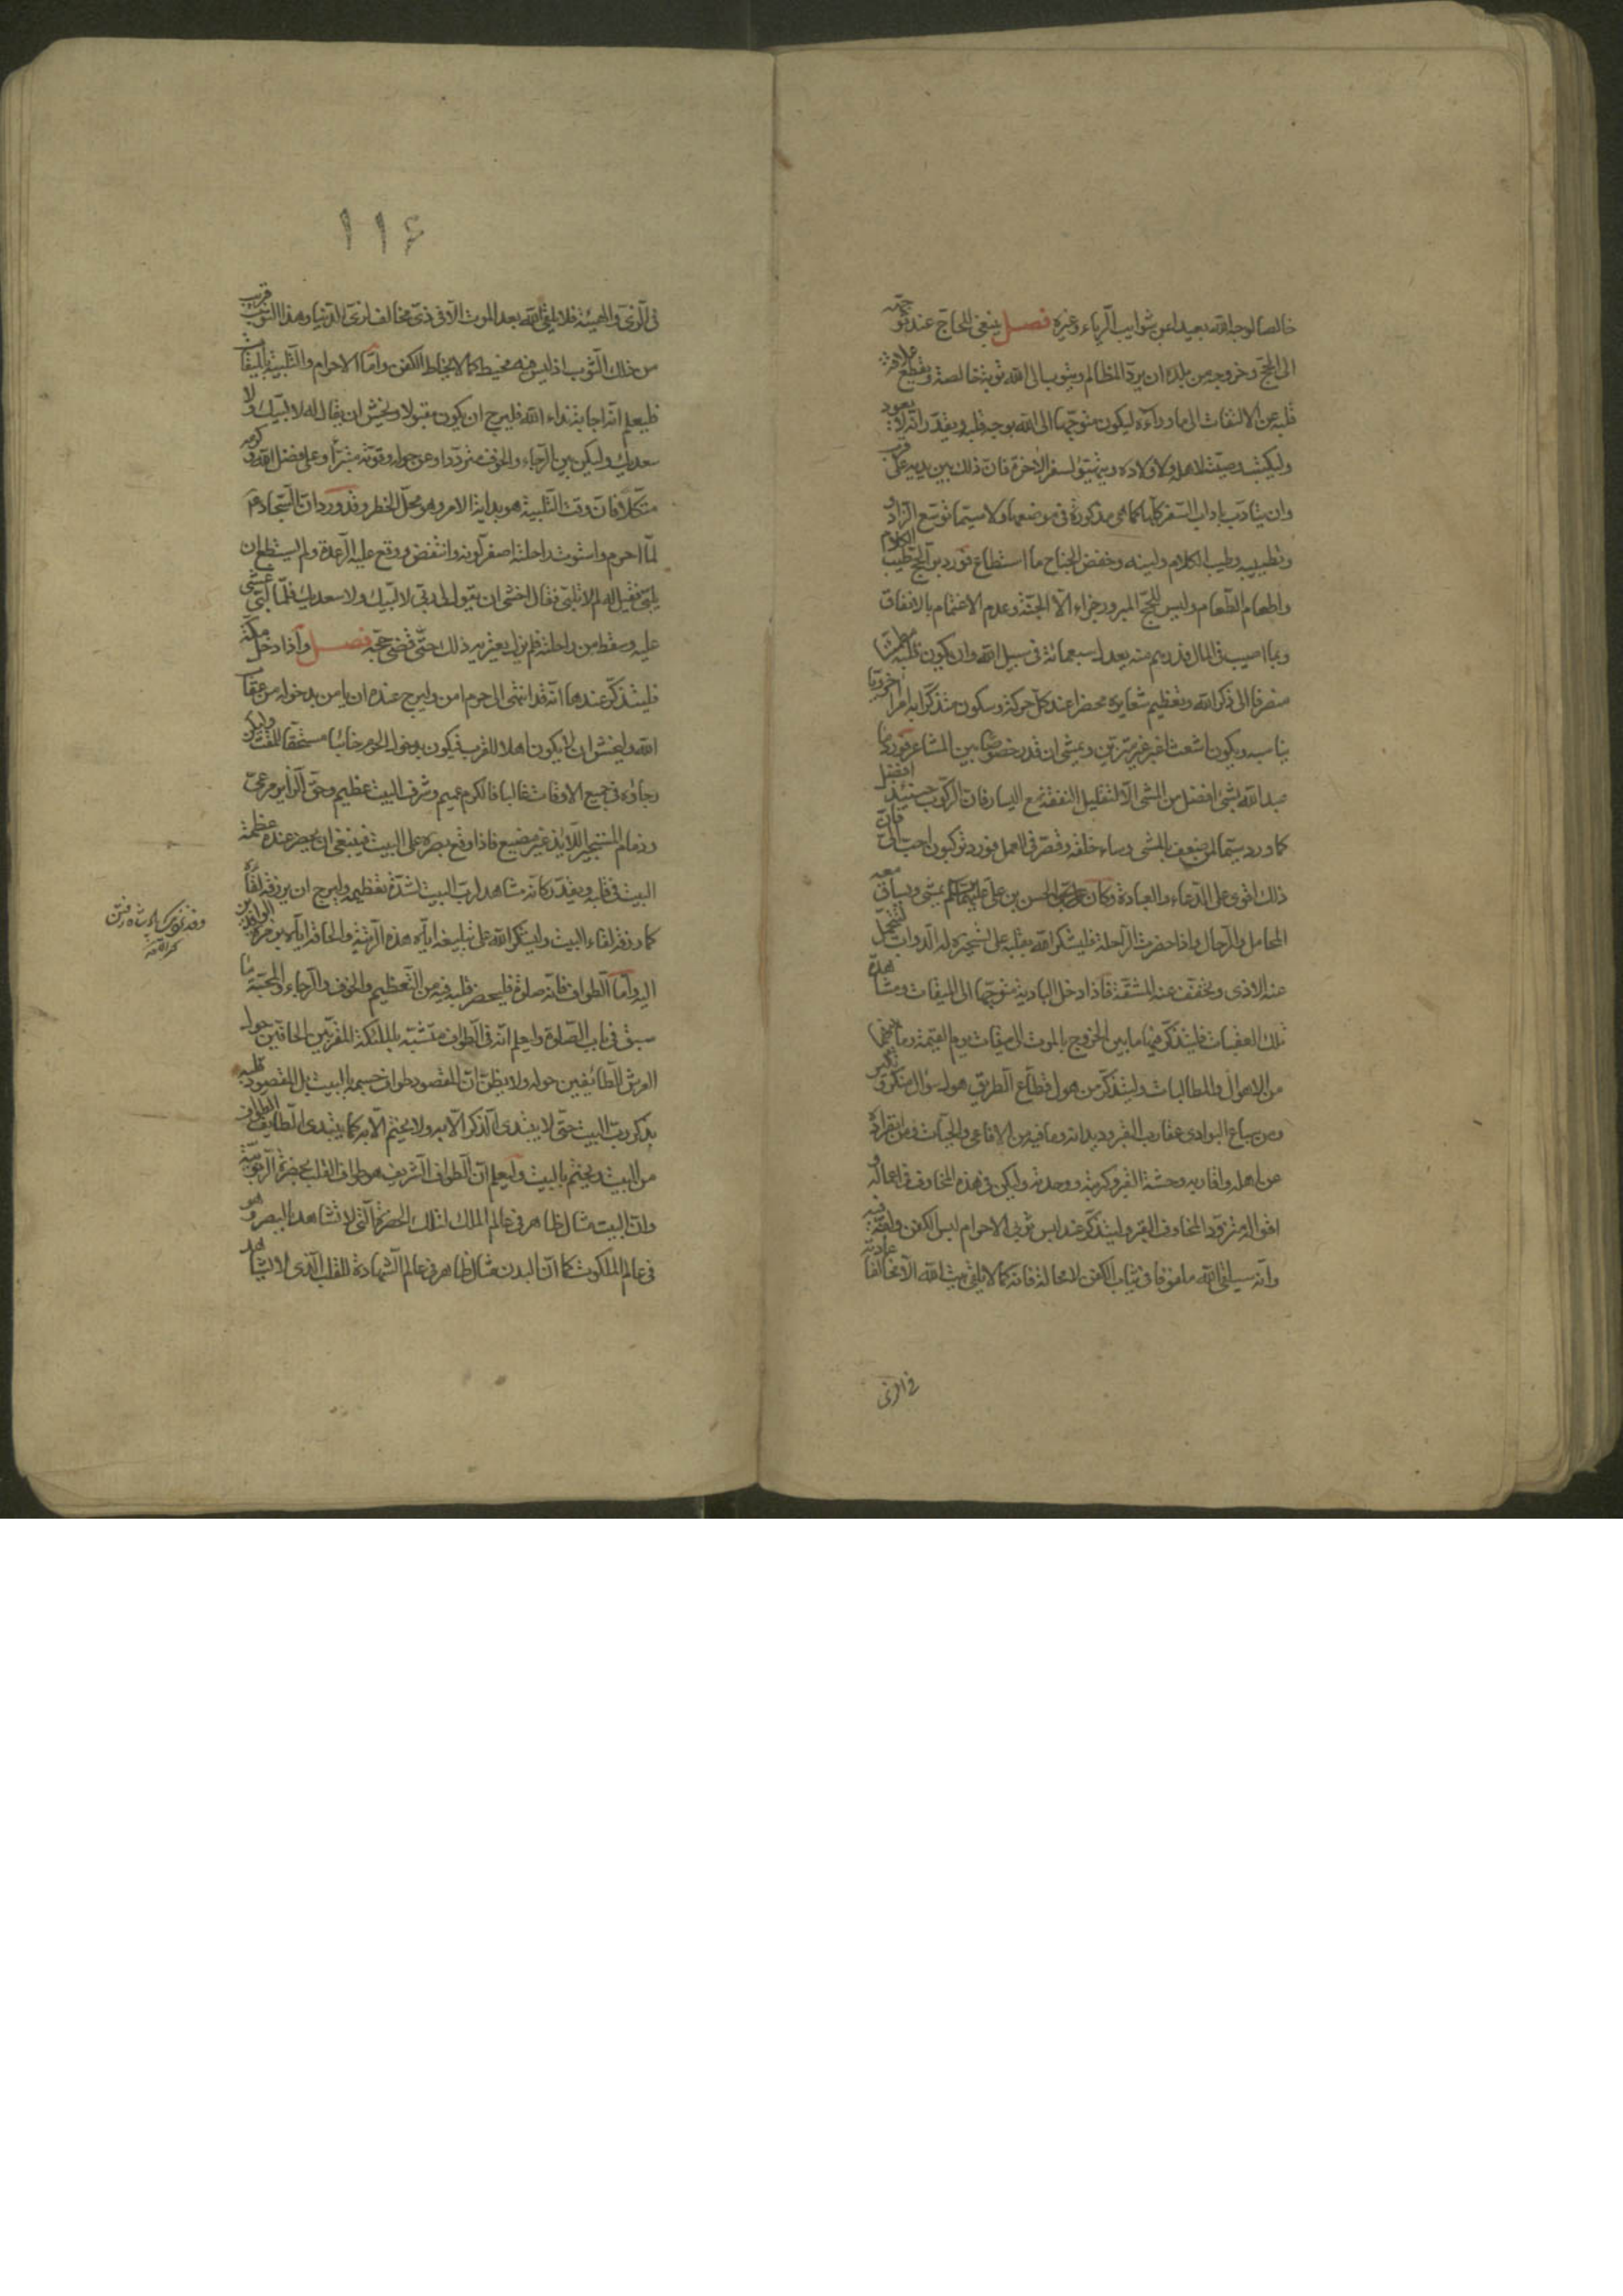 خالصا لوجه الله بعيدا عن شوايب الرياء وغيره فصل ينبغي للحاج عند توجهه
الى الحج وخروجه من بلده ان يرد المظالم ويتوب الى الله توبة خالصة ويقطع علاقة
قلبه عن الالتفات الى ما وراءه ليكون متوجها الى الله بوجه قلبه ويقدر انه لا يعود
وليكتب وصيته لاهله ولاولاده ويتهيؤ لسفر الاخرة فان ذلك بين يديه على قرب
وان يتأدب باداب السفر كلها كما هي مذكورة في موضعها ولا سيما توسع الزاد و
وتطييبه وطيب الكلام ولينه وخفض الجناح ما استطاع فورد بر الحج طيب الكلام
واطعام الطعام وليس للحج المبرور جزاء الا الجنة وعدم الاغتمام بالانفاق
وبما اصيب في المال فدرهم منه يعدل سبعمائة في سبيل الله وان يكون قلبه مطمئنا
منصرفا الى ذكر الله وتعظيم شعايره محضرا عند كل حركة وسكون متذكرا به امرا اخرويا
يناسبه ويكون اشعث اغبر غير متزين ويمشي ان قدر خصوصا بين المشاعر فورد ما
عبد الله بشئ افضل من المشي الا لتقليل النفقة مع اليسار فان الركوب حينئذ افضل
كما ورد سيما لمن ضعف بالمشي وساء خلقه وقصر في العمل فورد تركبون احب الي فان
ذلك اقوى على الدعاء والعبادة وكان الحسن بن علي عليهما السلم يمشي ويساق معه
المحامل والرحال واذا حضرت الراحلة فليشكر الله بقلبه على تسخيره له الدواب لتتحمل
عنه الاذى ويخفف عنه المشقة فاذا دخل البادية متوجها الى الميقات ومشاهدة
تلك العقبات فليتذكر فيها ما بين الخروج بالموت الى ميقات يوم القيمة وما بينهما
من الاهوال والمطالبات وليتذكر من هول قطاع الطريق هول سؤال منكر ونكير
ومن سباع البوادي عقارب القبر وديدانه وما فيه من الافاعي والحيات ومن انفراده
عن اهله واقاربه وحشة القبر وكربته ووحدته وليكن في هذه المخاوف في اعماله و
اقواله متزودا لمخاوف القبر وليتذكر عند لبس ثوبي الاحرام لبس الكفن ولفه فيه
وانه سيلقى الله ملفوفا في ثياب الكفن لا محالة فانه كما لا يلقى بيت الله الا مخالفا عادته
في الزي
١١۶
في الزي والهيئة فلا يلقى الله بعد الموت الا في زي مخالف لزي الدنيا وهذا الثوب قريب
من ذلك الثوب اذ ليس فيه مخيط كما لا يخاط الكفن واما الاحرام والتلبية بالميقات
فليعلم انه اجابة نداء الله فليرج ان يكون مقبولا وليخش ان يقال له لا لبيك ولا
سعديك وليكن بين الرجاء والخوف مترددا وعن حوله وقوته متبرأ وعلى فضل الله وكرمه
متكلا فان وقت التلبية هو بداية الامر وهو محل الخطر وقد ورد ان السجاد ع
لما احرم واستوت راحلته اصفر لونه وانتفض ووقع عليه الرعدة ولم يستطع ان
يلبي فقيل له لم لا تلبي فقال اخشى ان يقول لي ربي لا لبيك ولا سعديك فلما لبى غشي
عليه وسقط من راحلته فلم يزل يعتريه ذلك حتى قضى حجه فصل واذا دخل مكة
فليتذكر عندها انه قد انتهى الى حرم امن وليرج عنده ان يامن بدخوله من عقاب
الله وليخش ان لا يكون اهلا للقرب فيكون بدخول الحرم خائبا مستحقا للمقت وليكن
رجاؤه في جميع الاوقات غالبا فالكرم عميم وشرف البيت عظيم وحق الزاير مرعي
وذمام المستجير اللايذ غير مضيع فاذا وقع بصره على البيت فينبغي ان يحضر عنده عظمة
البيت في قلبه ويقدر كانه مشاهد لرب البيت لشدة تعظيمه وليرج ان يرزقه لقاءه
كما رزقه لقاء البيت وليشكر الله على تبليغه اياه هذه الرتبة والحاقه اياه بزمرة الوافدين
اليه واما الطواف فانه صلوة فليحضر قلبه فيه من التعظيم والخوف والرجاء والمحبة ما
سبق في باب الصلوة وليعلم انه في الطواف متشبه بالملئكة المقربين الحافين حول
العرش الطائفين حوله ولا يظن ان المقصود طواف جسمه بالبيت بل المقصود طواف قلبه
بذكر رب البيت حتى لا يبتدى الذكر الا به ولا يختم الا به كما يبتدى الطايف الطواف
من البيت ويختم بالبيت وليعلم ان الطواف الشريف هو طواف القلب بحضرة الربوبية
وان البيت مثال ظاهر في عالم الملك لتلك الحضرة التي لا تشاهد بالبصر وهو
في عالم الملكوت كما ان البدن مثال ظاهر في عالم الشهادة للقلب الذي لا يشاهد